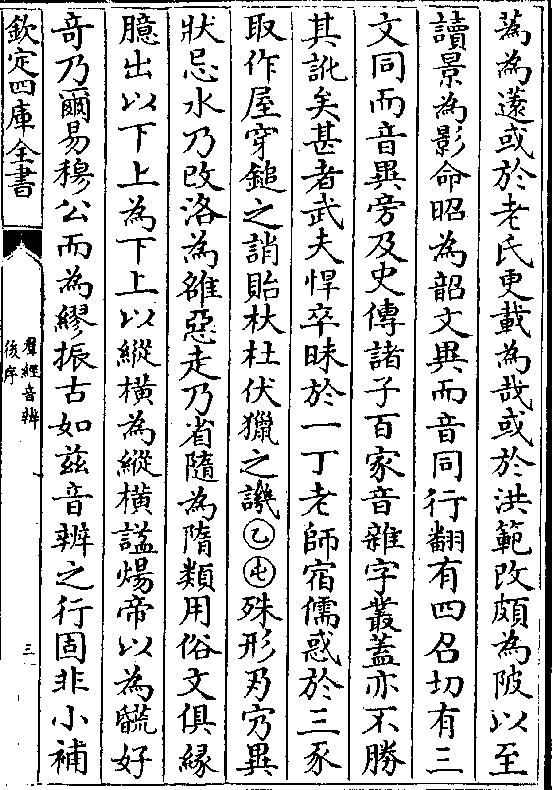 蒍為薳或於老氏更載為哉或於洪範改頗為陂以至
讀景為影命昭為韶文異而音同行翻有四召切有三
文同而音異旁及史傳諸子百家音雜字叢蓋亦不勝
其訛矣甚者武夫悍卒昧於一丁老師宿儒惑於三豕
取作屋穿鎚之誚貽杕杜伏獵之譏㋐殊形
狀忌水乃改洛為雒惡走乃省隨為隋類用俗文俱緣
臆出以下上為下上以縱橫為縱橫謚煬帝以為䁾好
奇乃爾易穆公而為繆振古如茲音辨之行固非小補
欽定四庫全書
羣經音辨
後序
三